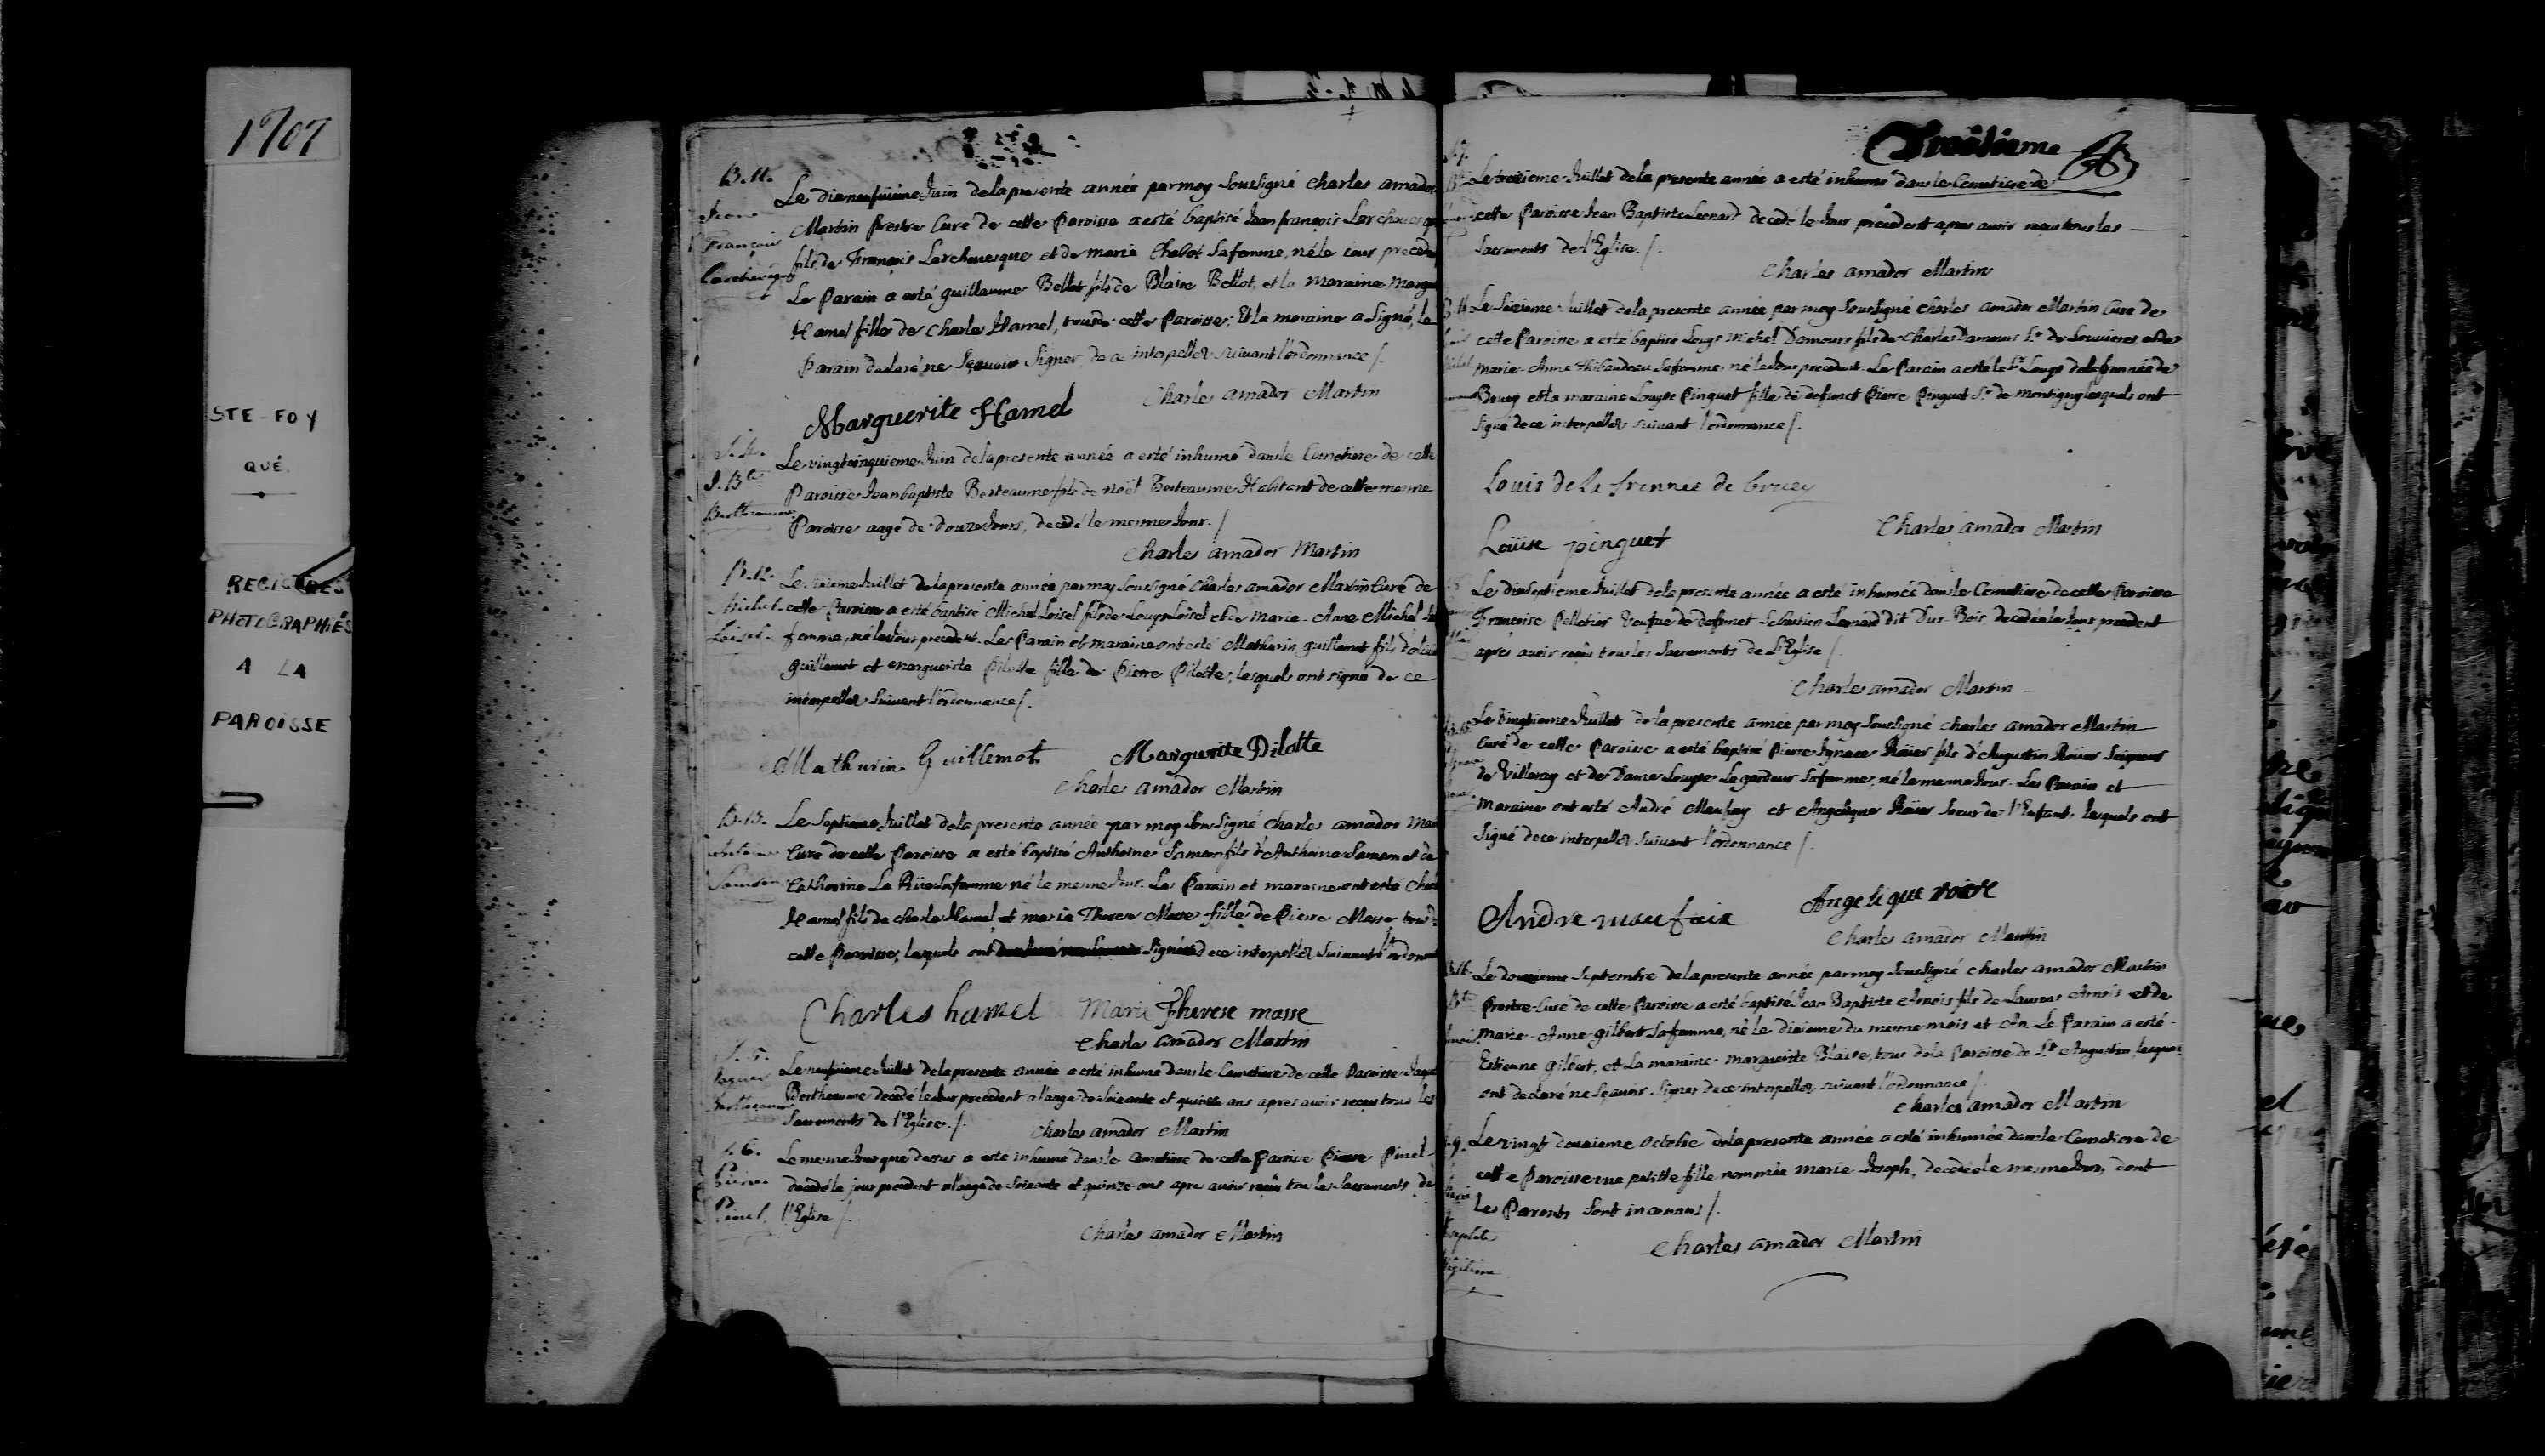 1707
STE-FOY
QUÉ.
REGISTRES
PHOTOGRAPHIÉS
A LA
PAROISSE
B. 11.
Jean
François
Larchevesque
Le dixneufuième Juin de la presente année par moy soussigné Charles Amador
Martin Prestre Curé de cette Paroisse a esté baptisé Jean françois Larchevesque
fils de François Larchevesque et de marie Chabot sa femme, né le iour precedent
Le Parain a esté guillaume Bellot fils de Blaise Bellot, et la maraine Margu
Hamel fille de Charles Hamel, tous de cette Paroisse; Et la maraine a signé, le
Parain declaré ne sçauoir signer de ce interpellez suiuant l'ordonnance /.
Charles amador Martin
Marguerite Hamel
S. 4.
J. Bte
Bertheaume
Le vingtcinquieme Juin de la presente année a esté inhumé dans le Cemetiere de cette
Paroisse Jean baptiste Berteaume fils de noël Berteaume Habitant de cette mesme
Paroisse aagé de douze Jours, decedé le mesme Jour. /
Charles amador Martin
B. 12.
Michel
Loisel
Le Juillet de la presente année par moy soussigné Charles amador Martin Curé de
cette Paroisse a esté baptisé Michel Loisel fils de Louys Loisel et de marie-Anne Michel sa
femme, né le Jour precedent. Les Parain et maraine ont esté Mathurin guillemot fils
guillemot et marguerite Pilotte fille de Pierre Pilotte, lesquels ont signé de ce
interpellez suiuant l'ordonnance /.
Mathurin Guillemot Marguerite Pilotte
Charles amador Martin
B. 13.
Antoine
Samson
Le Septieme Juillet de la presente année par moy soussigné Charles amador Mar
Curé de cette Paroisse a esté baptisé Anthoine Samson fils d'Anthoine Samson et de
Catherine La Rüe sa femme né le mesme Jour. Les Parain et maraine ont esté Char
Hamel fils de Charles Hamel et marie Therese Masse fille de Pierre Masse tous de
cette Paroisse, lesquels ont signé de ce interpellez suiuant l'ordonn
Charles hamel Marie Therese masse
Charles amador Martin
S. 5.
Jaques
Bertheaume
Le neufuieme Juillet de la presente année a esté inhumé dans le Cemetiere de cette Paroisse Jaques
Bertheaume decedé le Jour precedent a l'aage de soixante et quinze ans apres auoir receu tous les
Sacrements de l'Eglise. /.
Charles amador Martin
S. 6.
Pierre
Pinel
Le mesme Jour que dessus a esté inhumé dans le Cemetiere de cette Paroisse Pierre Pinel
decedé le jour precedent a l'aage de soixante et quinze ans apres auoir receu tous les Sacrements de
l'Eglise /.
Charles amador Martin
Troisieme
Le troisieme Juillet de la presente année a esté inhumé dans le Cemetiere de
cette Paroisse Jean Baptiste Leonard decedé le Jour precedent apres auoir receu tous les
Sacrements de l'Eglise. /.
Charles amador Martin
Le Juillet de la presente année par moy soussigné Charles amador Martin Curé de
cette Paroisse a esté baptisé Louys Michel Damours fils de Charles Damours Sr. de Louuieres et de
marie-Anne Thibaudeau sa femme, né le Jour precedent. Le Parain a esté le Sr. Louys de la frennée de
Brucy et la maraine Louyse Pinguet fille de defunct Pierre Pinguet Sr. de montigny lesquels ont
signé de ce interpellez suiuant l'ordonnance /.
Louis de La frennee de brucy
Charles amador Martin
Louise pinguet
Le dixseptieme Juillet de la presente année a esté inhumée dans le Cemetiere de cette Paroisse
Françoise Pelletier Veufue de defunct Sebastien Leonard dit Dur-Bois decedée le Jour precedent
après auoir receu tous les Sacrements de L'Eglise /.
Charles amador Martin
Le Vingtieme Juillet de la presente année par moy soussigné Charles amador Martin
Curé de cette Paroisse a esté baptisé Pierre Ignace Roüer fils d'Augustin Roüer Seigneur
de Villeray et de Dame Louyse Legardeur sa femme, né le mesme Jour. Les Parain et
maraine ont esté André Maufay et Angelique Roüer soeur de l'Enfant, lesquels ont
signé de ce interpellez suiuant l'ordonnance /.
Andre maufaix
Angelique
Charles amador Martin
Le douzieme Septembre de la presente année par moy soussigné Charles amador Martin
Prestre Curé de cette Paroisse a esté baptisé Jean Baptiste Amois fils de Laurens Amois et de
marie-Anne gilbert sa femme, né le dixieme du mesme mois et An. Le Parain a esté
Estienne gilbert, et la maraine marguerite Blaise, tous de la Paroisse de St. Augustin lesquels
ont declaré ne sçauoir signer de ce interpellez suiuant l'ordonnance /.
Charles amador Martin
Le vingt douxieme octobre de la presente année a esté inhumée dans le Cemetiere de
cette Paroisse une petitte fille nommée marie-Joseph, decedée le mesme Jour, dont
Les Parents sont inconnus /.
Charles amador Martin